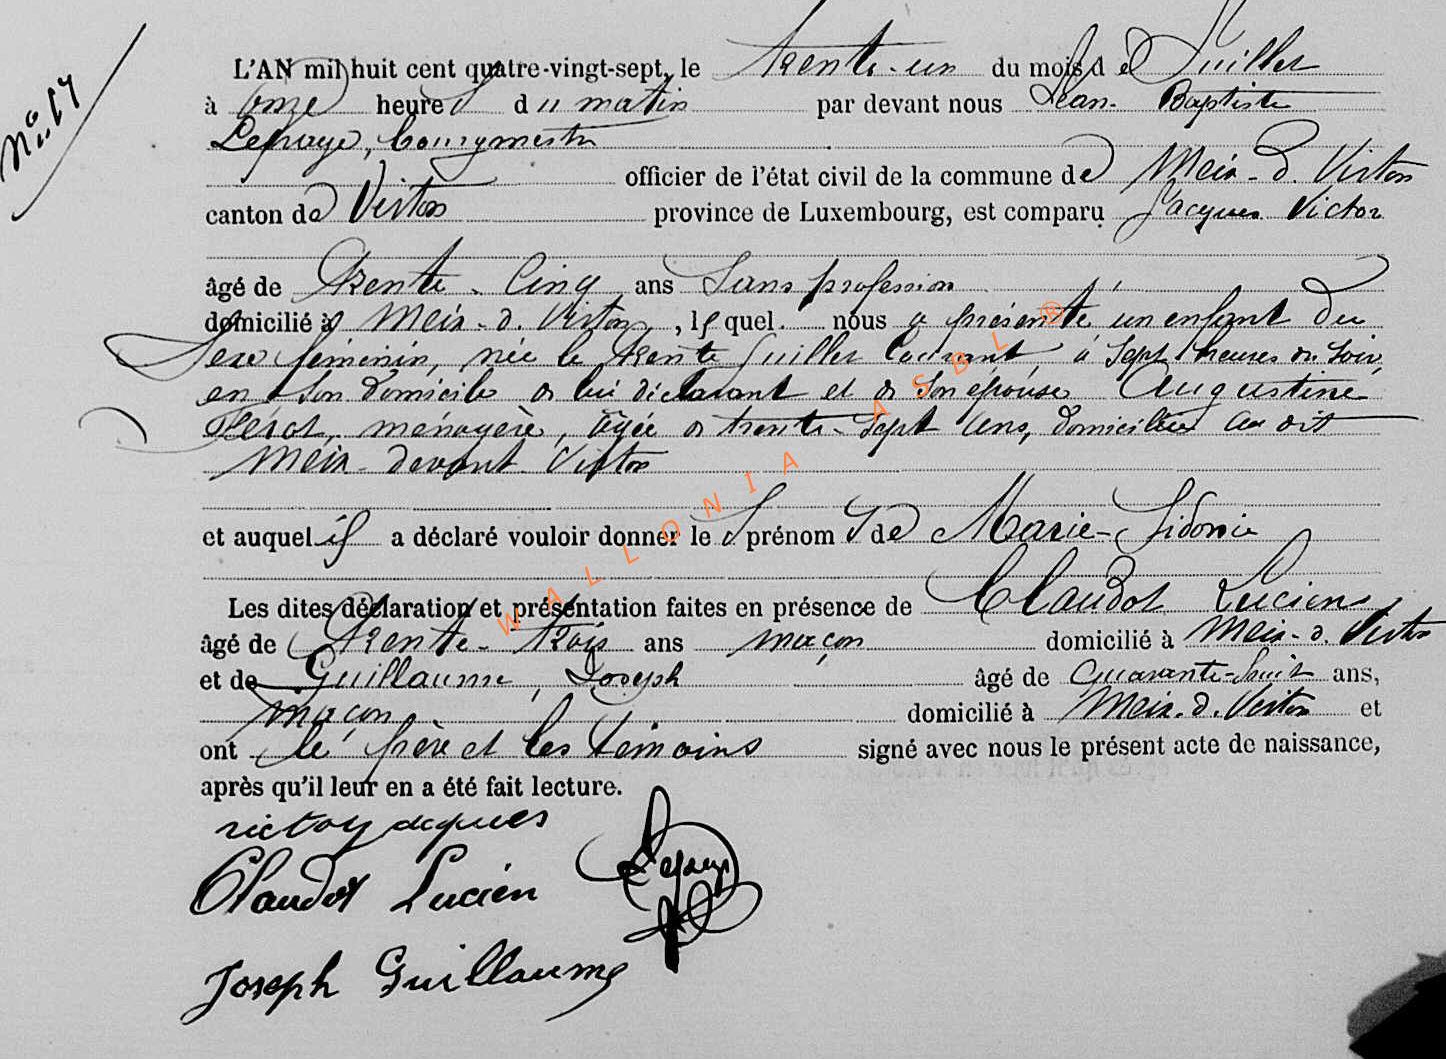 N° 17
L'AN mil huit cent quatre-vingt-sept, le trente-un du mois de Juillet
à onze heures du matin par devant nous Jean-Baptiste
Lepage, bourgmestre
officier de l'état civil de la commune de Meix-d. Virton
canton de Virton province de Luxembourg, est comparu Jacques Victor
âgé de trente-cinq ans sans profession
domicilié à Meix-d. Virton, lequel nous a présenté un enfant du
sexe féminin, née le trente Juillet courant, à sept heures du soir,
en son domicile de lui déclarant et de son épouse Augustine
ménagère, âgée de trente-sept ans, domiciliée au dit
Meix-devant-Virton
et auquel il a déclaré vouloir donner les prénoms de Marie-Sidonie
Les dites déclaration et présentation faites en présence de Claudot Lucien
âgé de trente-trois ans maçon domicilié à Meix-d. Virton
et de Guillaume, Joseph âgé de quarante-huit ans,
maçon domicilié à Meix-d. Virton et
ont le père et les témoins signé avec nous le présent acte de naissance,
après qu'il leur en a été fait lecture.
victor jacques
Claudot Lucien Lepage
Joseph Guillaume
WALLONIA ASBL ®